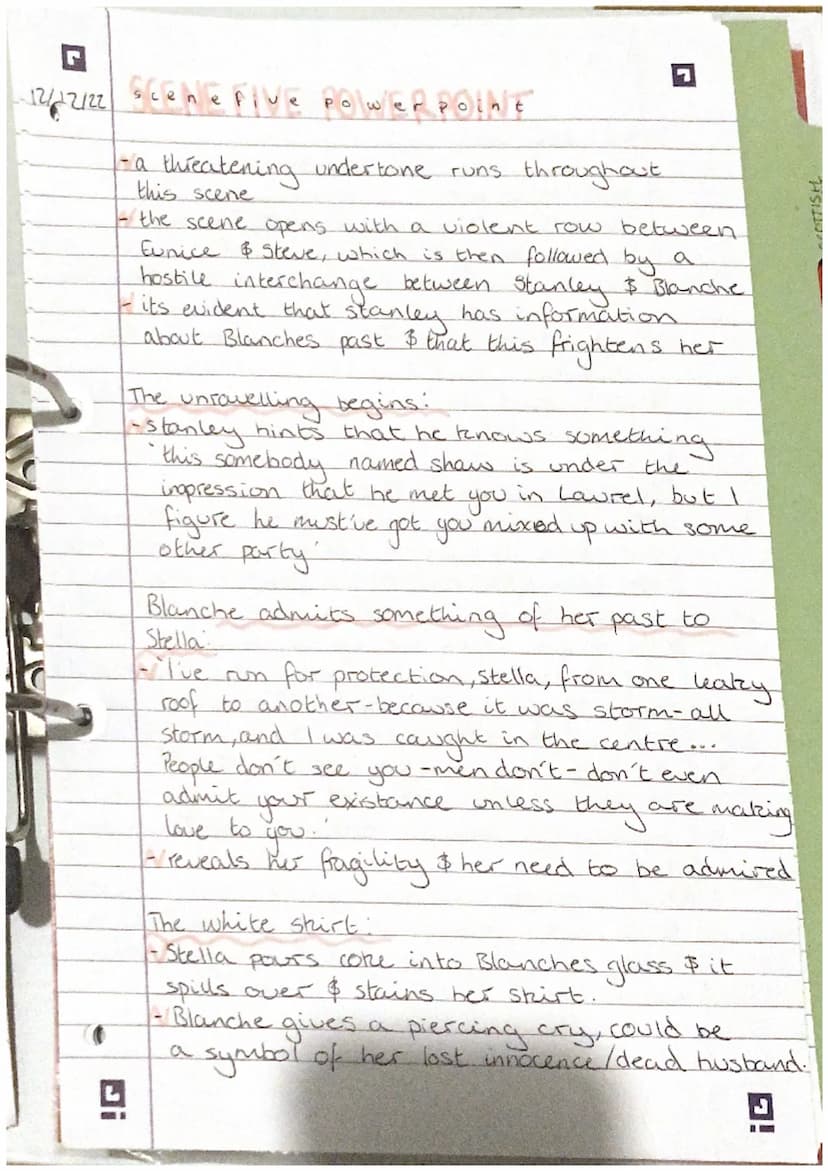 12/12/22
SCENE FIVE POWERPOINT
scene five powerpoint
- a threatening undertone runs throughout
this scene
- the scene opens with a violent row between
Eunice & Steve, which is then followed by a
hostile interchange between Stanley & Blanche
- its evident that stanley has information
about Blanches past & that this frightens her
The unravelling begins:
- stanley hints that he knows something
'this somebody named shaw is under the
impression that he met you in Lawrel, but I
figure he must've got you mixed up with some
other party'
Blanche admits something of her past to
Stella:
- 'I've run for protection, stella, from one leaky
roof to another - because it was storm - all
storm, and I was caught in the centre...
People don't see you - men don't - don't even
admit your existance unless they are making
love to you.'
- reveals her fragility & her need to be admired
The white skirt:
- Stella pours coke into Blanches glass & it
spills over & stains her skirt.
- Blanche gives a piercing cry, could be
a symbol of her lost innocence/dead husband.